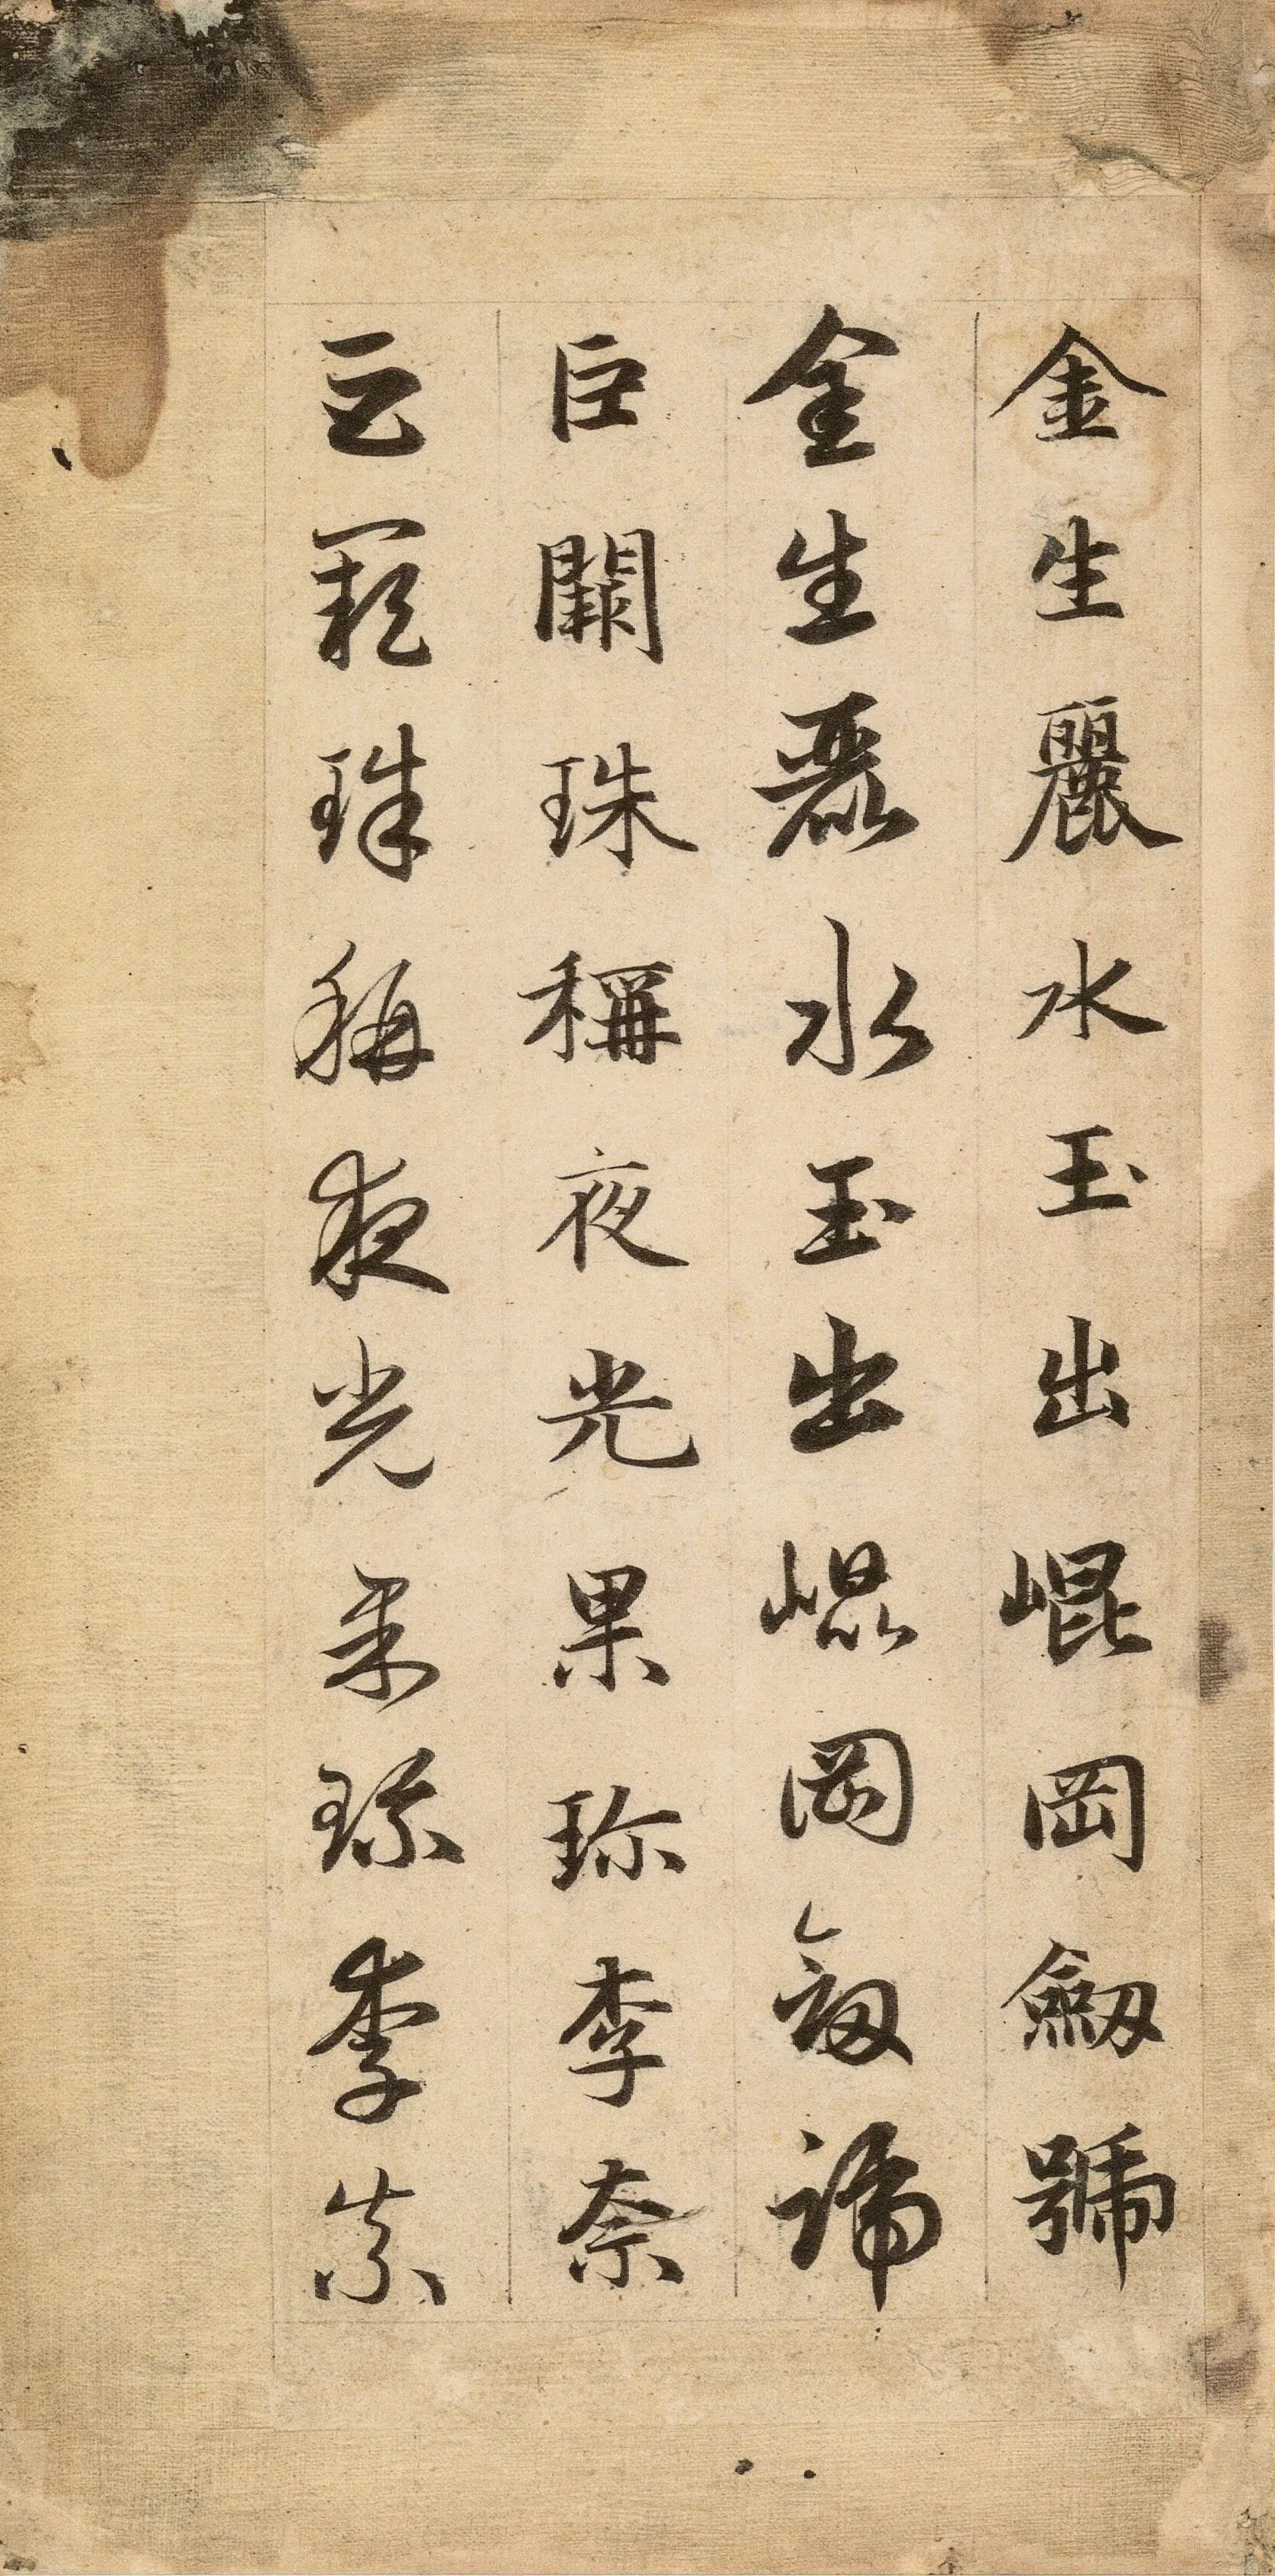 金生麗水玉出崐岡劒號
金生麗水玉出崐岡劒號
巨闕珠稱夜光果珎李柰
巨闕珠稱夜光果珎李柰